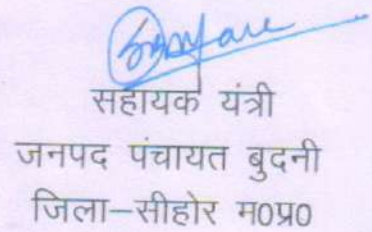 सहायक यंत्री
जनपद पंचायत बुदनी
जिला–सीहोर म0प्र0